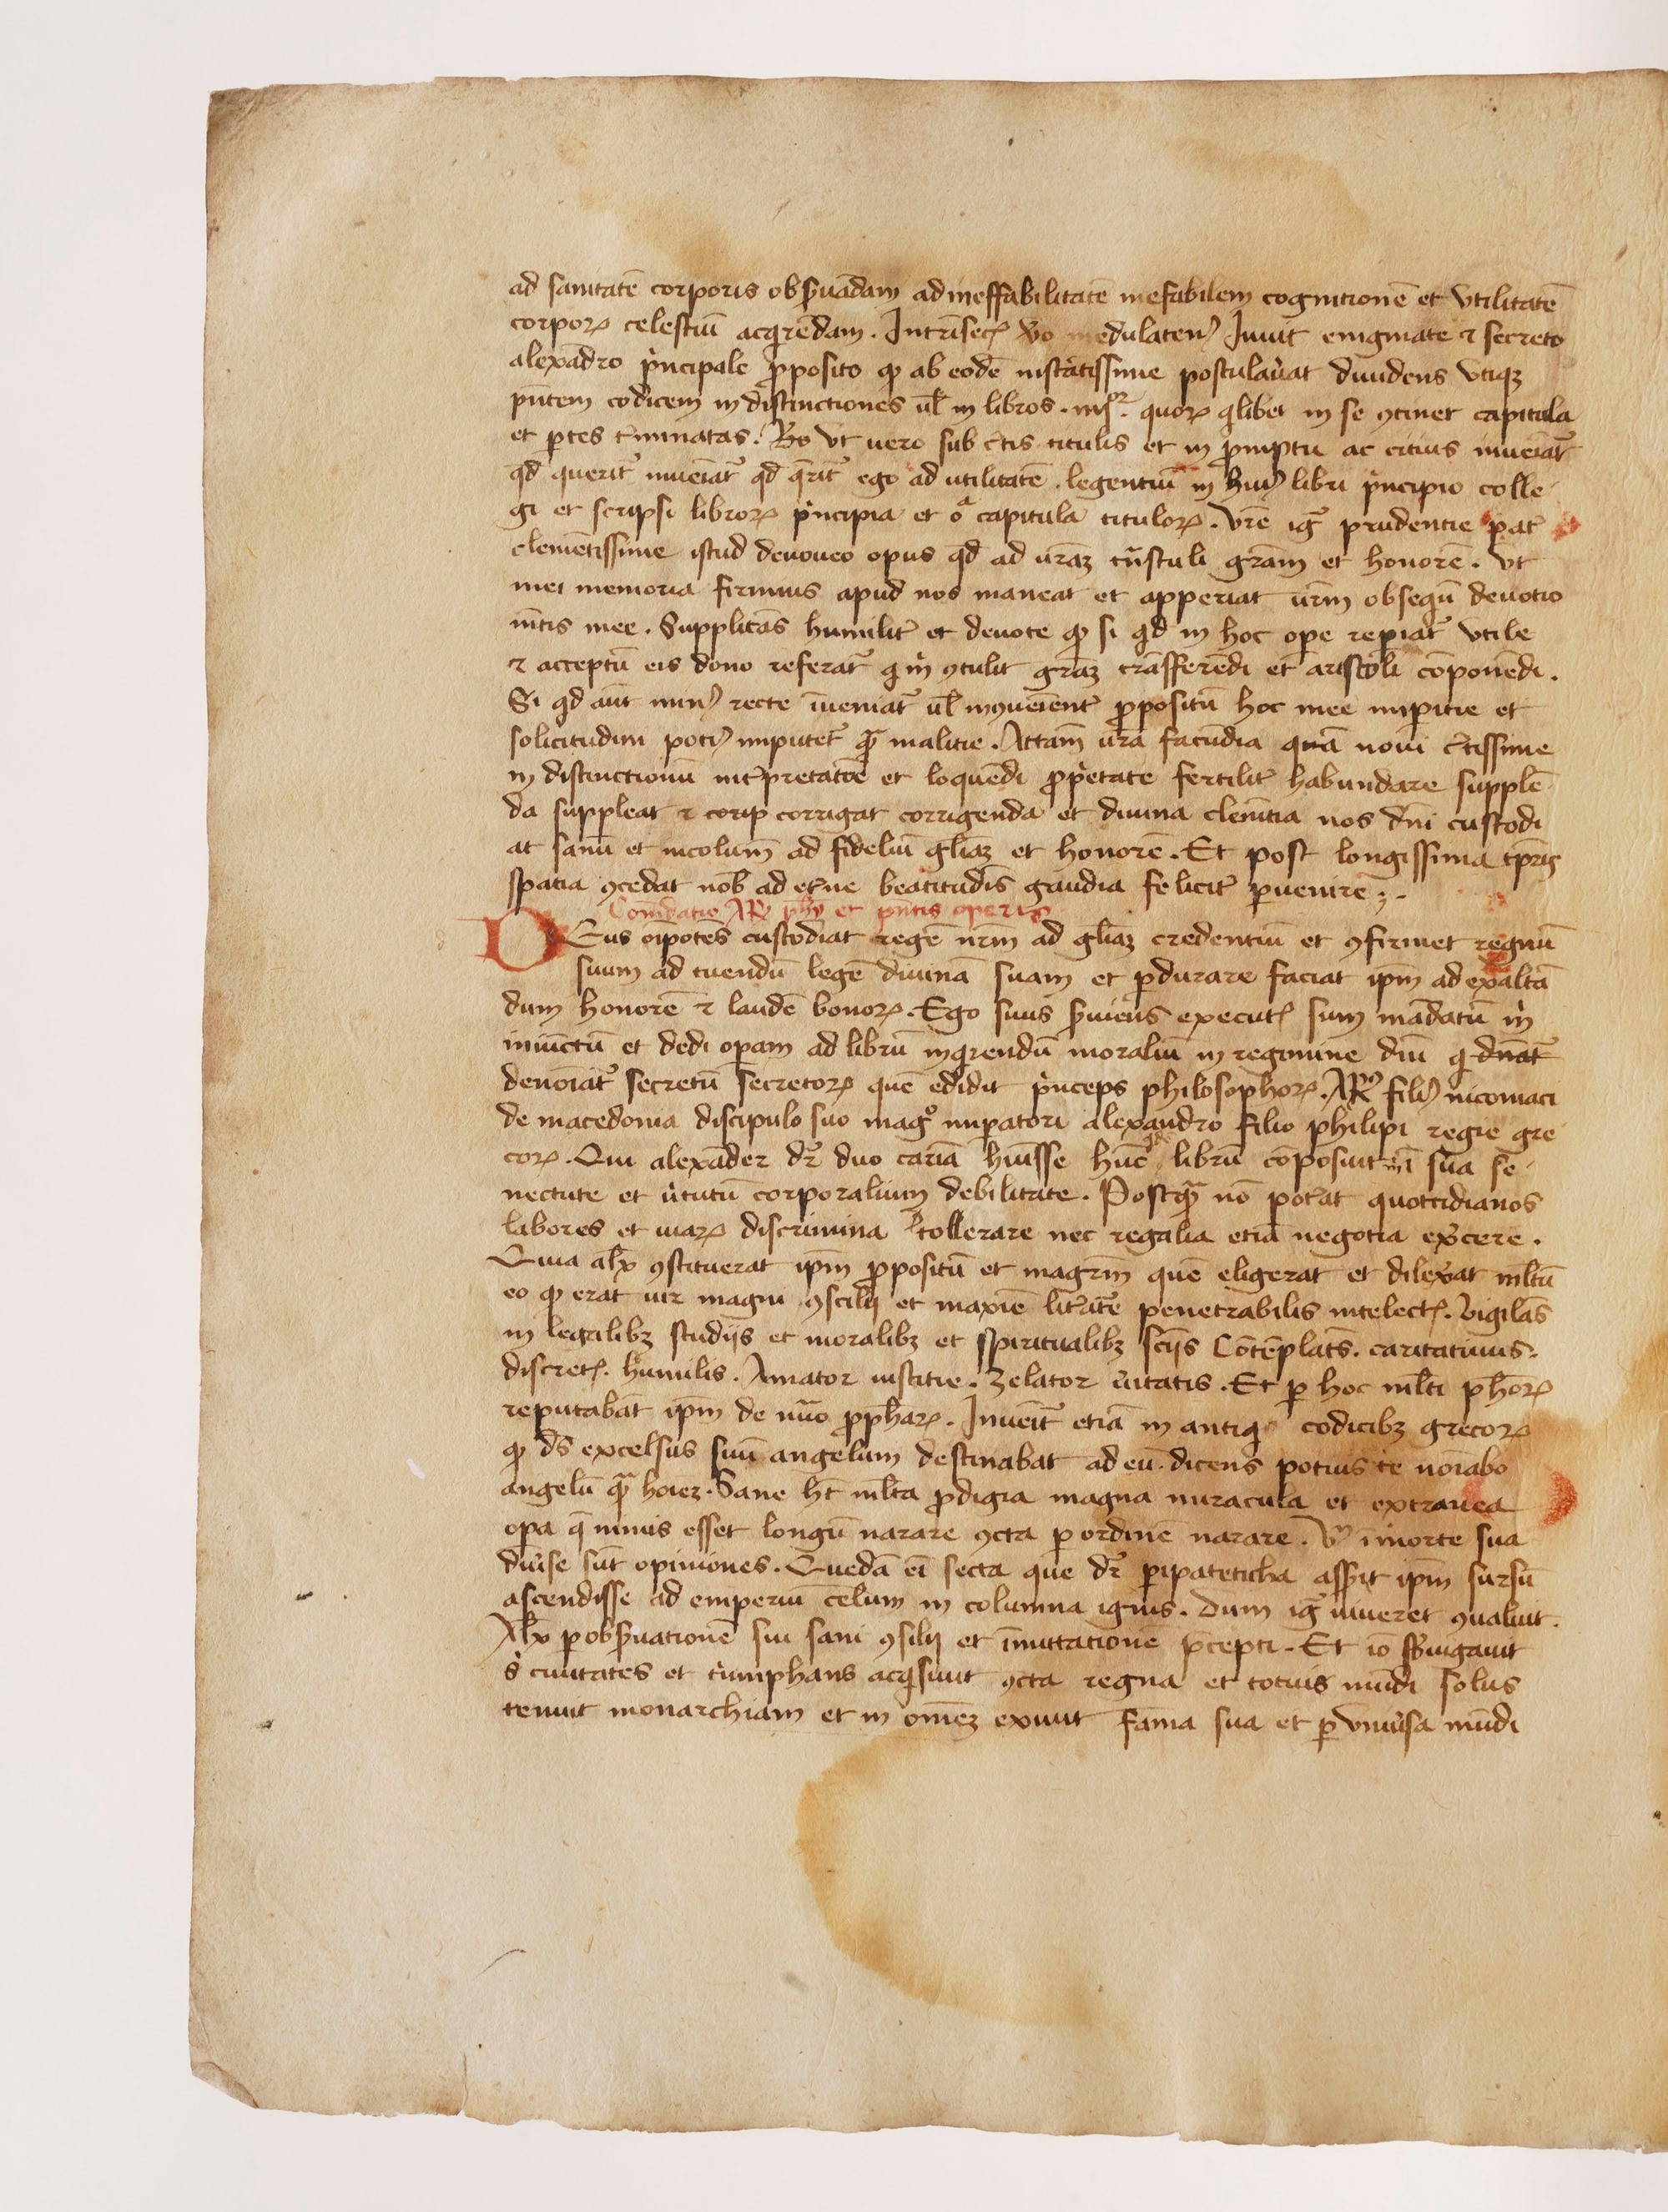 ad sanitatē corporis obseruādam ad ineffabilitatē inefabilem cognitionē et vtilitatē
corporꝝ celestiū acqrēdam. Intrīsecꝰ vo medulatenꝰ Inuit enigmate ⁊ secreto
alexādro pͥncipale ꝓposito ꝙ ab eodē instātissime postulauͣat diuidens vtiqꝫ
pn̄tem codicem in distinctiones ul̄ in libros. quoꝝ qͥlibet in se ꝯtinet capitula
et ꝑtes t̄minatas. Vt uero sub c̄tis titulis et in ꝓmptu ac citius inueīat᷑
qd̄ querit᷑ inueīat᷑ qd̄ q̄rit᷑ ego ad utilitatē legentiū in huiꝰ libri pͥncipio colle
gi et scripsi libroꝝ pͥncipia et oͣ capitula tituloꝝ. Vr̄e ig᷑ prudentie pat᷑
clemētissime istud deuoueo opus qd̄ ad ur̄aꝫ gr̄am et honorē. Vt
mei memoria firmius apud nos maneat et apperiat ur̄m obseqū deuotio
mn̄tis mee. Supplicās humilit᷑ et deuote ꝙ si qͥd in hoc ope repiat᷑ vtile
⁊ acceptū eis dono referat᷑ qͥ mͥ ꝯtulit gr̄aꝫ trāsfferēdi et componēdi.
Si qͥd aūt minꝰ recte īueniat᷑ ul̄ ꝓpositū hoc mee impitie et
solicitudini potiꝰ imputet᷑ qͣꝫ malitie. Attam̄ ur̄a facūdia quā noui c̄tissime
in distinctionū int̄pretatōe et loquēdi ꝓpͥetate fertilit᷑ habundare supplē
da suppleat ⁊ corrigat corrigenda et diuina clem̄tia nos dn̄i custodi
at sanū et incolumē ad fideliū gl̄iaꝫ et honorē. Et post longissima tp̄ris
spatia ꝯcedat nob̄ ad et̄ne beatitudīs gaudia felicit᷑ ꝑuenire ⁊.
Com̄datio Ar̄ ph̄i et pn̄tis operis
DEus oīpotēs custodiat regē nr̄m ad gl̄iaꝫ credentiū et ꝯfirmet regnū
suum ad tuendū legē diuinā suam et ꝑdurare faciat ip̄m ad exaltā
dum honorē ⁊ laudē bonoꝝ. Ego suus seruiens executꝰ sum mādatū mͥ
iniūctū et dedi opam ad librū inqͥrendū moraliū in regimine dn̄i qͥ dn̄at᷑
denoīat᷑ secretū secretoꝝ quē edidit pͥnceps philosophoꝝ. Ar̄ filiꝰ nicomaci
de macedonia discipulo suo magͦ impatori alexandro filio philipi regie gre
coꝝ. Qui alexāder dr̄ duo huīsse hūc librū cōposuit in sua se
nectute et uͥtutū corporalium debilitate. Postqͣꝫ nō pot̄at quottidianos
labores et uiaꝝ discrimina tollerare nec regalia etiā negotia exc̄ere.
Quia alx̄ ꝯstituerat ip̄m ꝓpositū et magr̄m quē eligerat et dilex̄at ml̄tū
eo ꝙ erat uir magni ꝯscilij et maxīe litr̄ate penetrabilis intelectꝰ. Vigilās
in legalibꝫ studijs et moralibꝫ et spiritualibꝫ scīis Cōtēplās. caritatiuus.
discretꝰ. humilis. Amator iustitie. Zelator ueritatis. Et ꝑ hoc ml̄ti ph̄oꝝ
reputabāt ip̄m de nūo ꝓph̄aꝝ. Inueīt᷑ etiā in antiqͥs codicibꝫ grecoꝝ
ꝙ ds̄ excelsus suū angelum destinabat ad eū dicens potius te noīabo
angelū qͣꝫ hoīeꝫ. Sane hꝫ ml̄ta ꝓdigia magna miracula et extranea
opa q̄ nimis esset longū narare ꝯcta ꝑ ordinē narare. Vn̄ ī morte sua
diu͛se sūt opiniones. Quedā eī secta que dr̄ ꝑipateticha asserit ip̄m sursū
ascendisse ad emperiū celum in columna ignis. Dum ig᷑ uiueret ꝯualuit.
Alx̄ ꝑ obseruationē sui sani ꝯsilij et īmittationē p̄cepti. Et iō subiugauit
sͥ ciuitates et tͥumphans acqͥsiuit ꝯcta regna et totius mūdi solus
tenuit monarchiam et in om̄eꝫ exiuit fama sua et ꝑ vniu͛sa mūdi